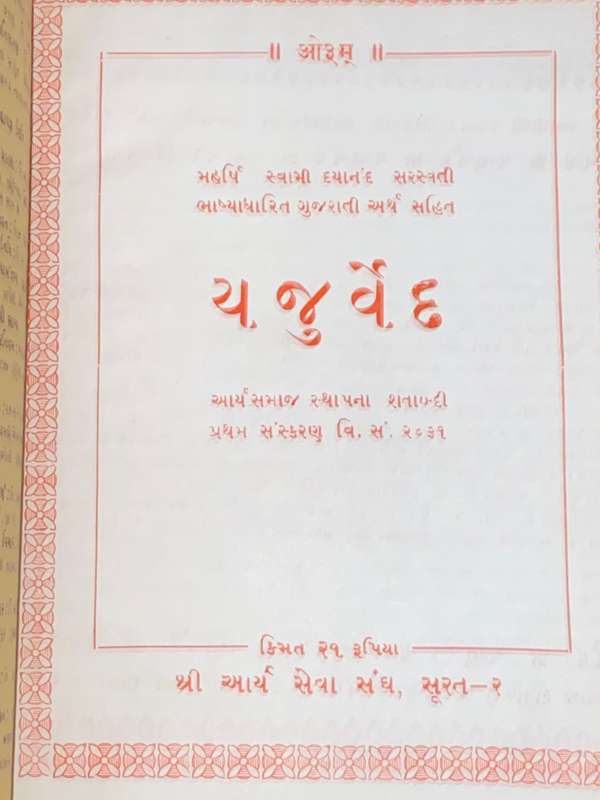 ॥ ओ३म् ॥
મહર્ષિ સ્વામી દયાનંદ સરસ્વતી
ભાષ્યાધારિત ગુજરાતી અર્થ સહિત
યજુર્વેદ
આર્યસમાજ સ્થાપના શતાબ્દી
પ્રથમ સંસ્કરણ વિ. સં. ૨૦૩૧
કિંમત ૨૧ રૂપિયા
શ્રી આર્ય સેવા સંઘ, સૂરત-૨